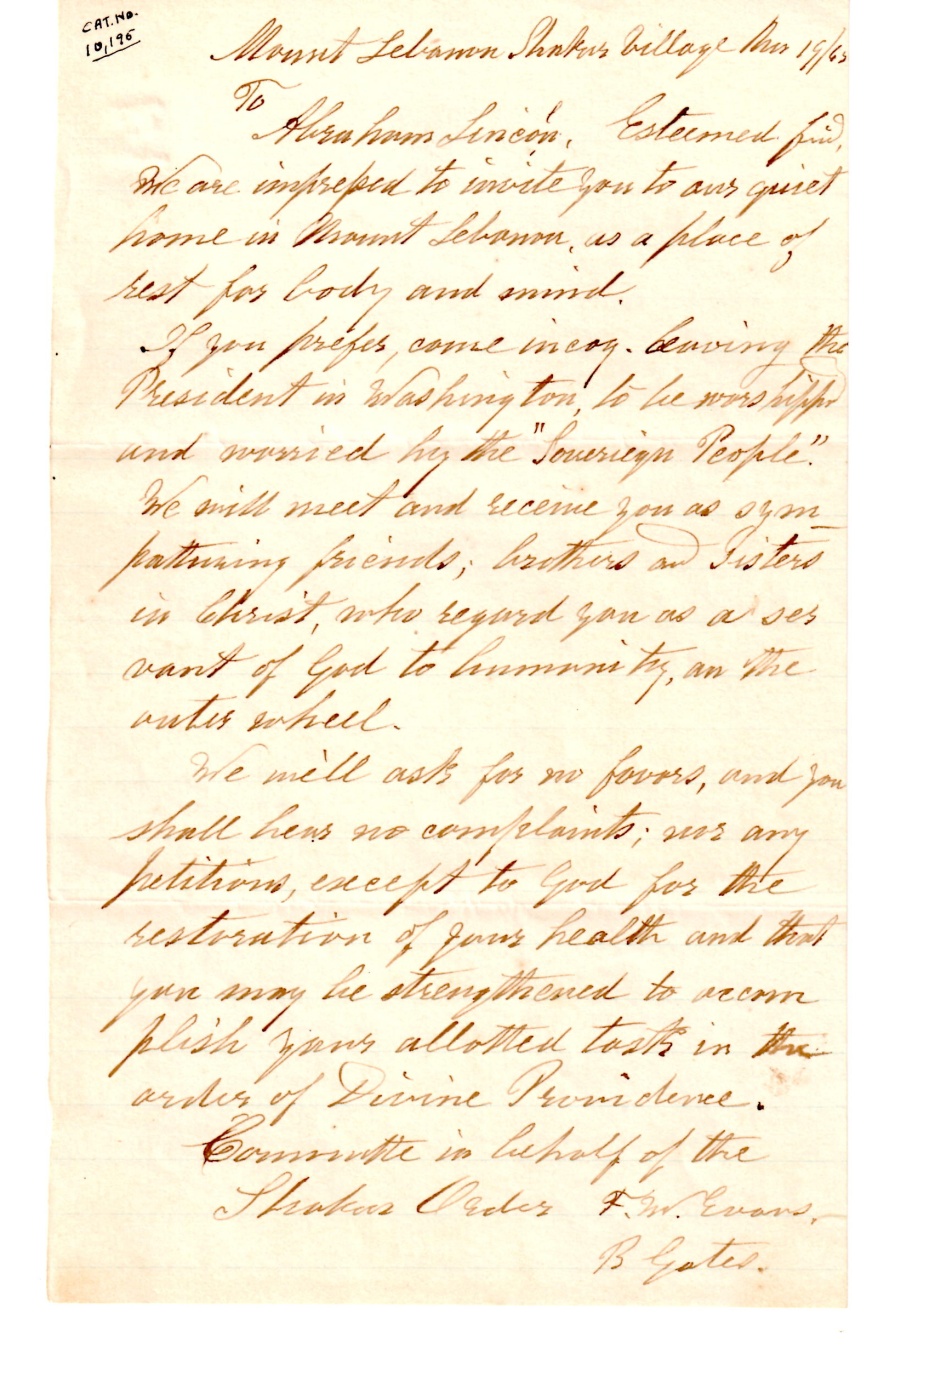 CAT. NO.
10,195
Mount Lebanon Shaker Village 19/65
To
Abraham Lincon, Esteemed frid,
We are impressed to invite you to our quiet
home in Mount Lebanon, as a place of
rest for body and mind.
If you prefer, come incog. leaving the
President in Washington, to be worshippd
and worried by the "Sovereign People".
We will meet and receive you as sym-
pathizing friends; brothers and Sisters
in Christ, who regard you as a ser
vant of God to humanity, on the
outer wheel.
We will ask for no favors, and you
shall hear no complaints; nor any
petitions, except to God for the
restoration of your health and that
you may be strengthened to accom
plish your allotted task in the
order of Divine Providence.
Committe in behalf of the
Shaker Order F. W. Evans.
B Gates.